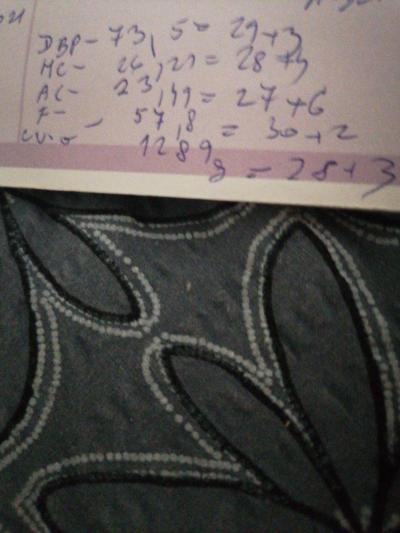 DBP- 73,5 = 29+3
HC- 26,21 = 28+3
AC- 23,49 = 27+6
F- 57,8 = 30+2
1289 g = 28+3